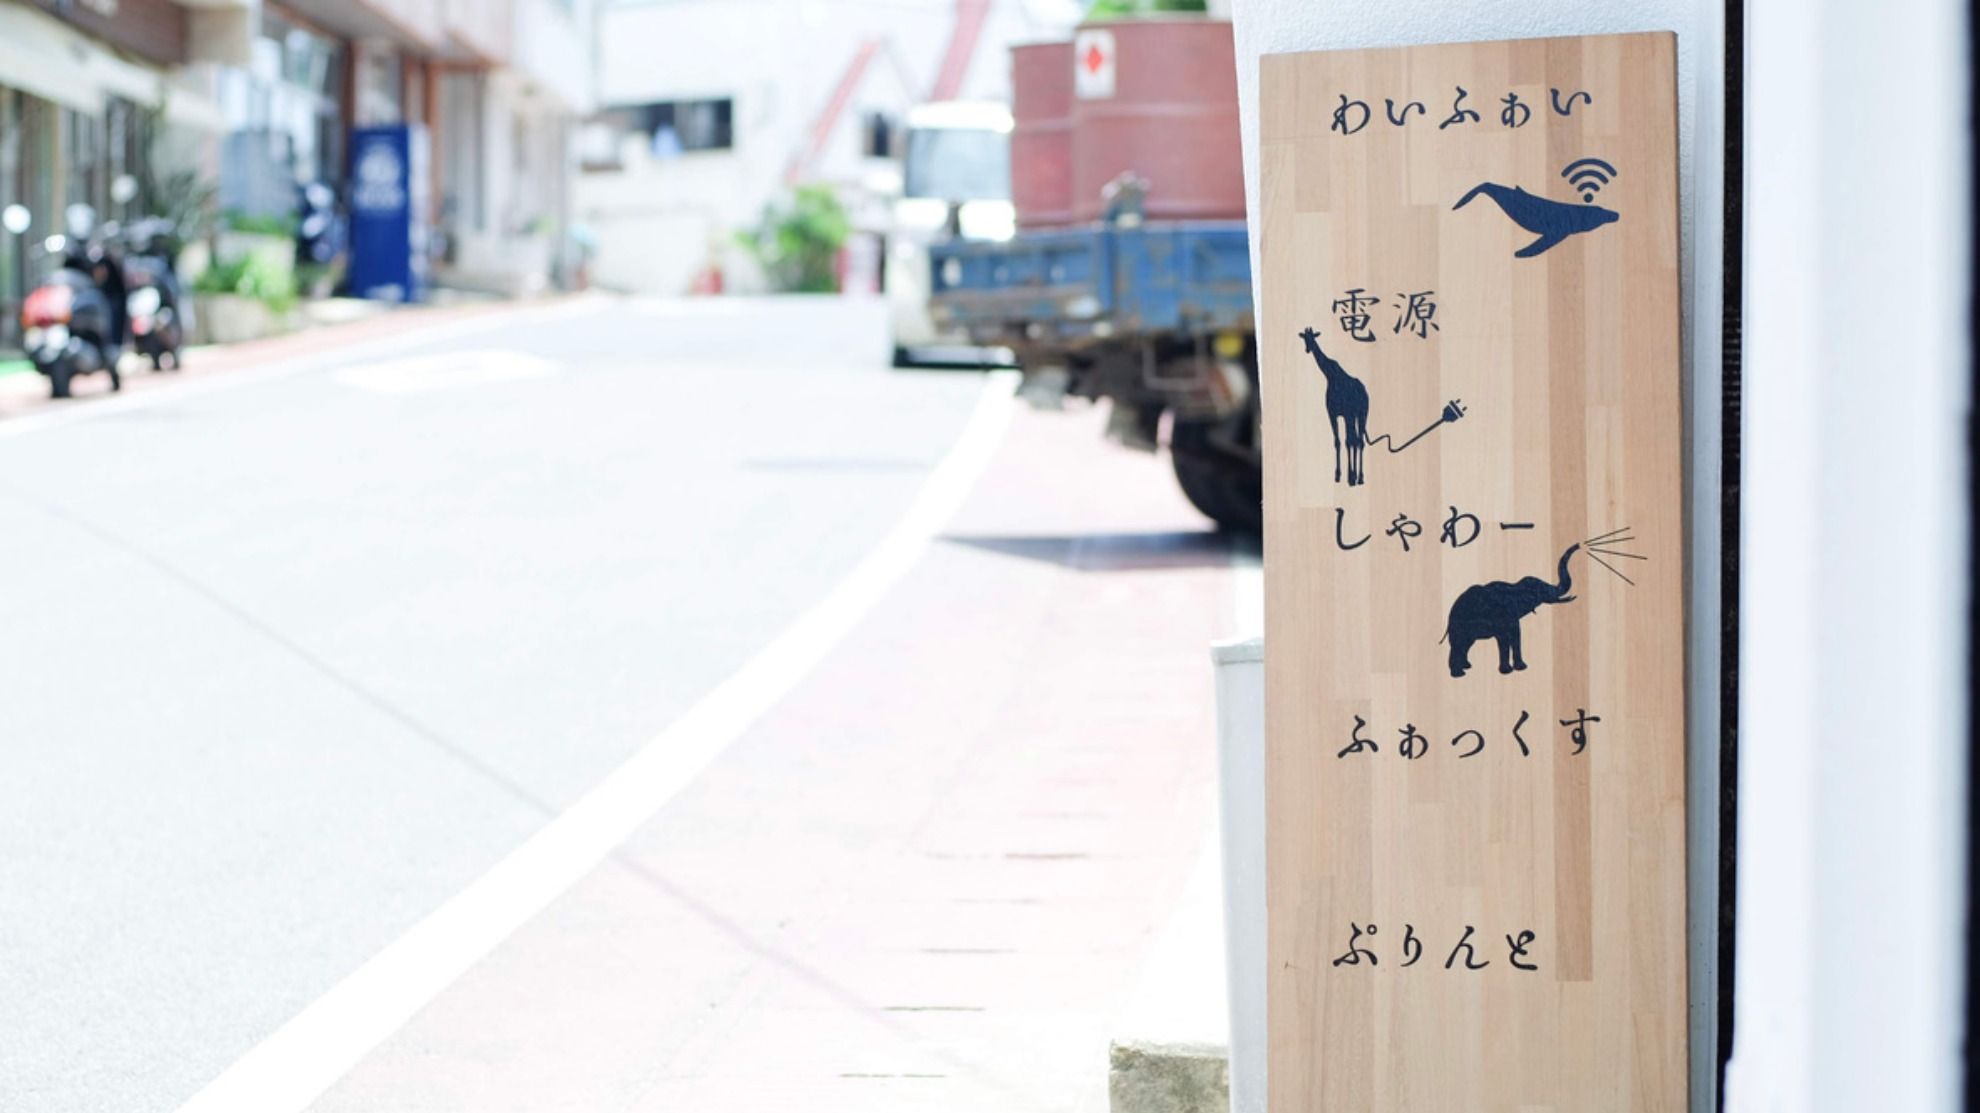 わいふぁい
電源
しゃわー
ふぁっくす
ぷりんと